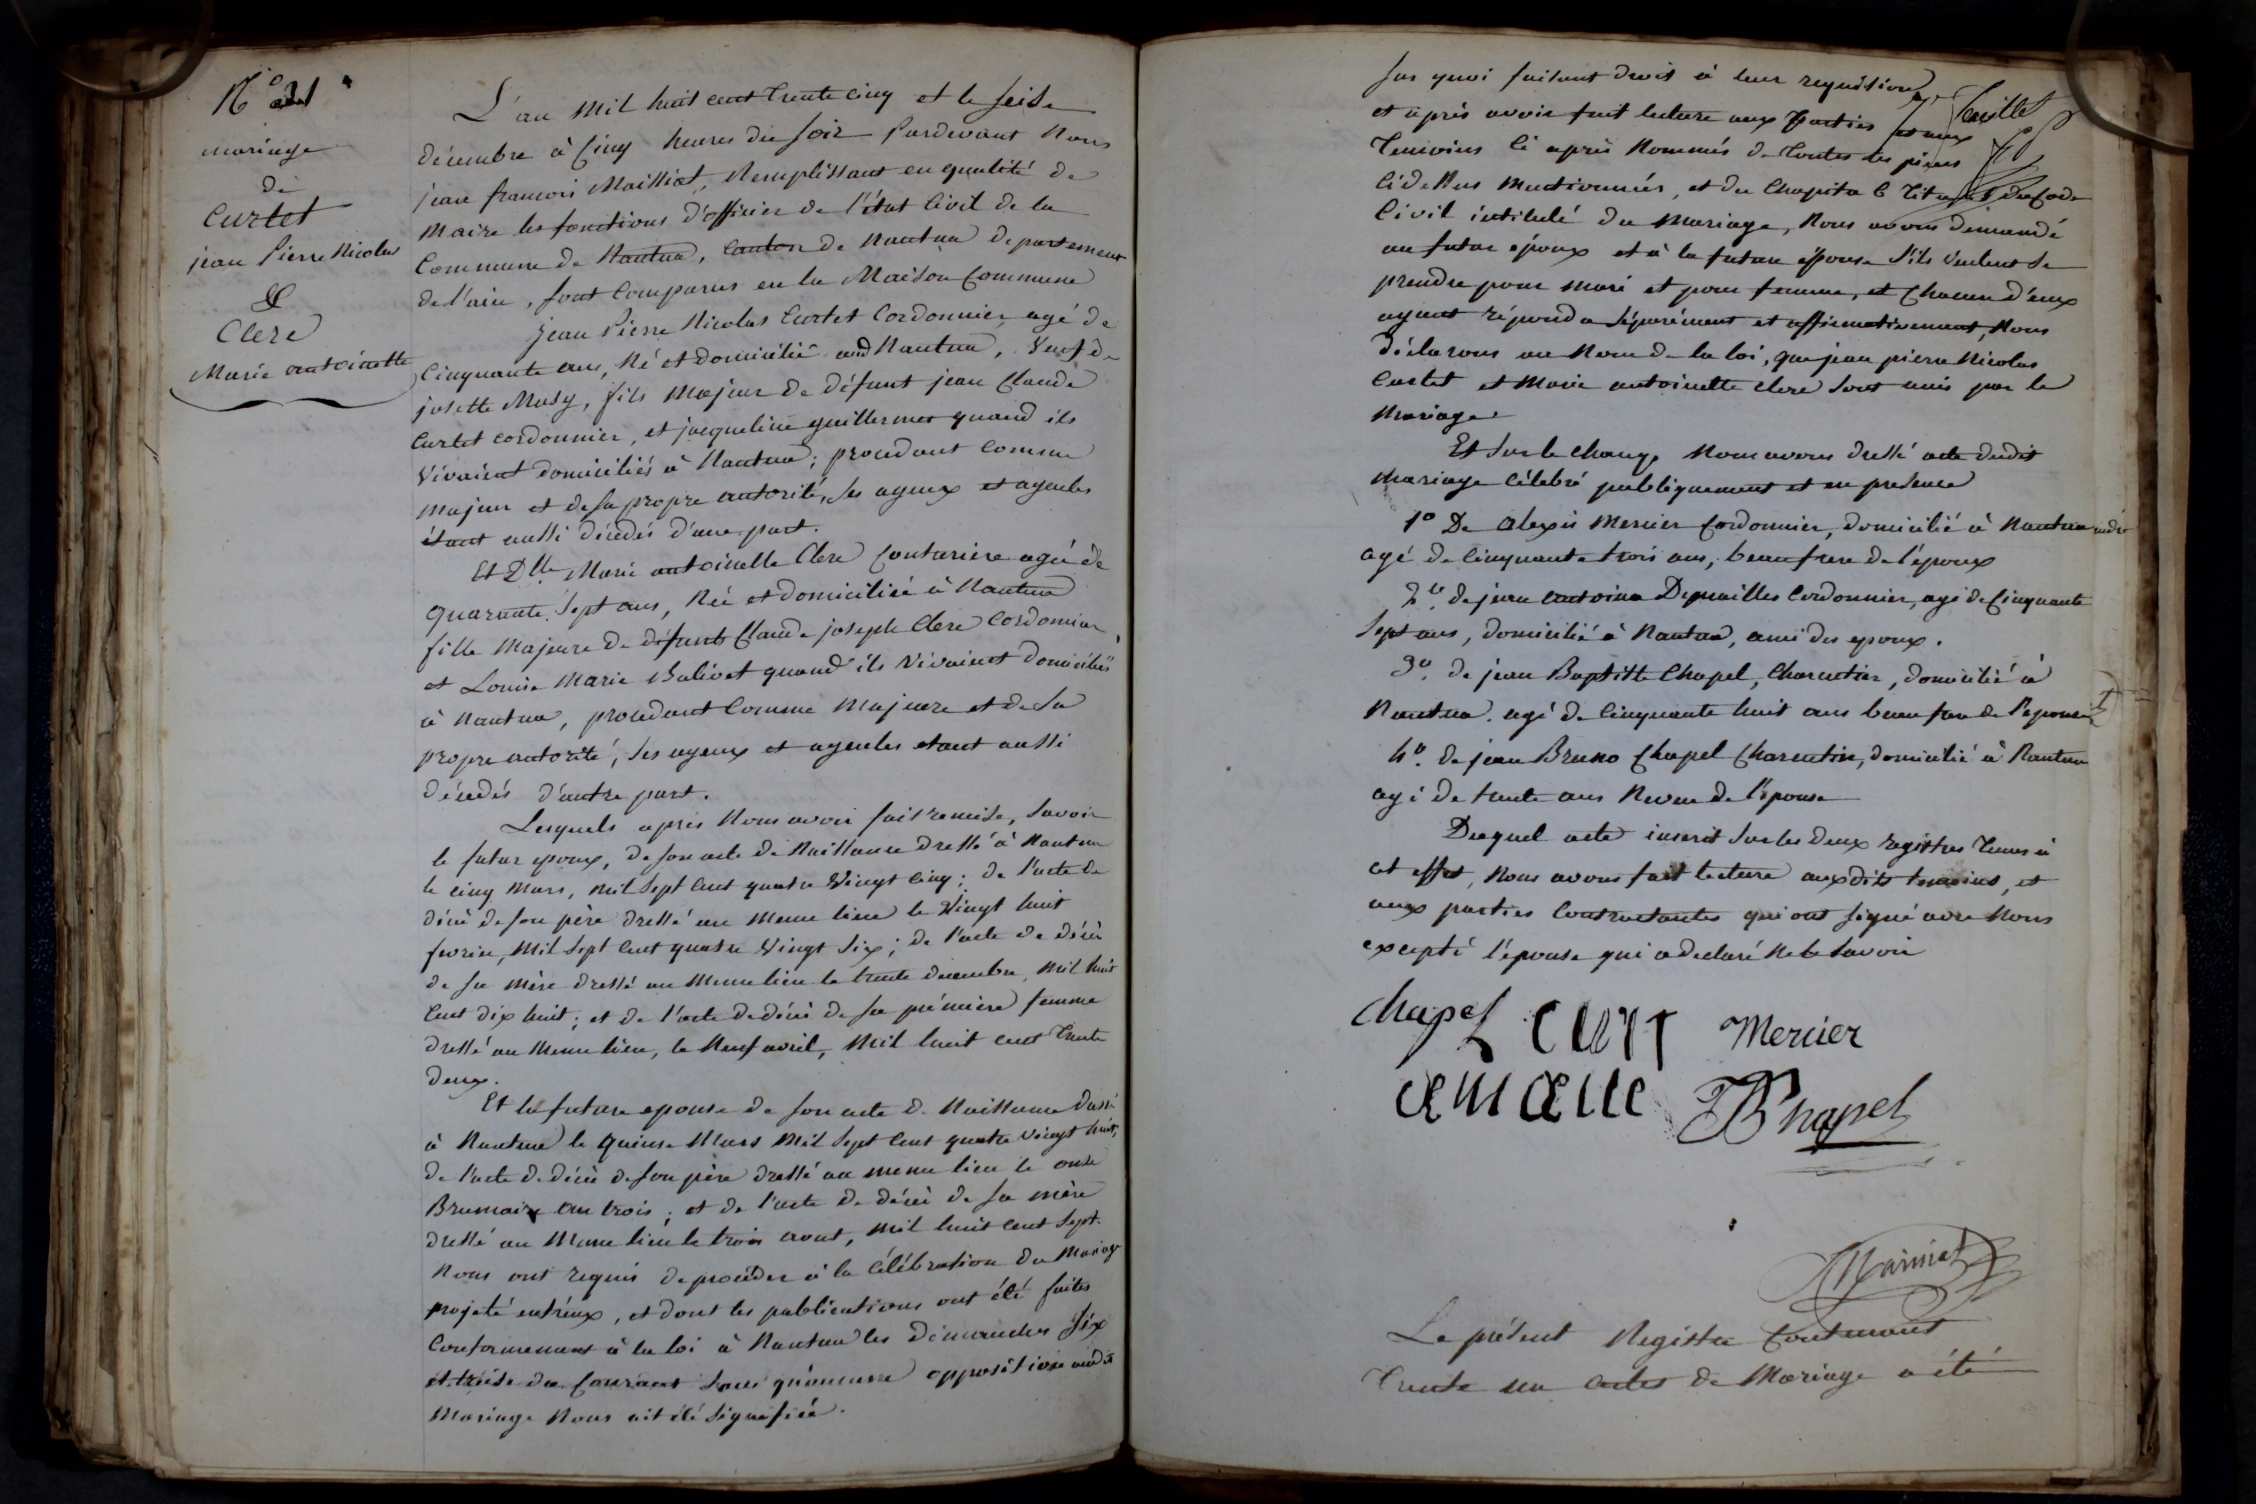 N° 31
mariage
de
Curtet
jean Pierre Nicolas
&
Clerc
Marie antoinette
L'an mil huit cent trente cinq et le seize
décembre à cinq heures du soir Pardevant Nous
jean françois Maissiat, Remplissant en qualité de
Maire les fonctions d'officier de l'état Civil de la
Commune de Nantua, canton de Nantua departement
de l'ain, sont Comparus en la Maison Commune
jean Pierre Nicolas Curtet Cordonnier, agé de
Cinquante ans, Né et domicilié à Nantua, Veuf de
josette Musy, fils Majeur de défunt jean Claude
Curtet cordonnier, et jacqueline guillermet quand ils
vivaient domiciliés à Nantua; procedant comme
majeur et de sa propre autorité, ses ayeux et ayeules
étant aussi décédés d'une part.
Et Dlle Marie antoinette Clerc Couturiere agée de
quarante sept ans, Née et domiciliée à Nantua
fille Majeure de défunts Claude joseph Clerc Cordonnier,
et Louise Marie Balivet quand ils vivaient domiciliés
à Nantua, procedant Comme Majeure et de sa
propre autorité, ses ayeux et ayeules etant aussi
décédés d'autre part.
Lesquels apres Nous avoir fait remise, Savoir
le futur epoux, de son acte de Naissance dressé à Nantua
le cinq Mars, mil sept cent quatre Vingt cinq; de l'acte de
décè de son père dressé au meme lieu le Vingt huit
fevrier, mil sept cent quatre Vingt six; de l'acte de décè
de sa mère dressé au meme lieu le trente decembre, mil huit
cent dix huit; et de l'acte de décè de sa première femme
dressé au meme lieu, le Neuf avril, Mil huit cent trente
deux.
Et la future epouse de son acte de Naissance dressé
à Nantua le quinse Mars mil sept cent quatre vingt huit,
de l'acte de décè de son père dressé au meme lieu le onze
Brumaire an trois; et de l'acte de décè de sa mère
dressé au Meme lieu le trois aout, mil huit cent sept.
Nous ont requis de procéder à la célébration du Mariage
projeté entréux, et dont les publications ont été faites
Conformement à la loi à Nantua les dimanches six
et treise du Courant sans qu'aucune opposition audit
Mariage Nous ait été signifiée.
sur quoi faisant droit à leur requisition,
feuillet
et après avoir fait lecture aux Parties et aux
Temoins ci après Nommés de toutes les pieces
ci dessus mentionnées, et du Chapitre 6 Titre du Code
Civil intitulé du Mariage, Nous avons demandé
au futur époux et à la future épouse s'ils veulent se
prendre pour mari et pour femme, et Chacun d'eux
ayant répondu séparément et affirmativement, Nous
déclarons au Nom de la loi, que jean pierre Nicolas
Curtet et Marie antoinette clerc sont unis par le
Mariage
Et sur le champ Nous avons dressé acte dudit
Mariage célébré publiquement et en presence
1° De alexis Mercier Cordonnier, domicilié à Nantua
agé de Cinquante trois ans, beaufrere de l'époux
2° de jean antoine Depnailles Cordonnier, agé de Cinquante
Sept ans, domicilié à Nantua, ami des epoux.
3° de jean Baptiste Chapel, Charcutier, domicilié à
Nantua. agé de Cinquante huit ans beau frere de l'epouse
4° de jean Bruno Chapel Charcutier, domicilié à Nantua
agé de trente ans Neveu de l'epouse
Duquel acte inscrit sur les deux registres Tenus à
cet effet, Nous avons fait lecture auxdits temoins, et
aux parties Contractantes qui ont signé avec Nous
excepté l'épouse qui a declaré ne le savoir
chapel Curt Mercier
JB hapel
Maissiat
Le présent Registre Contenant
Trente un actes de Mariage a été